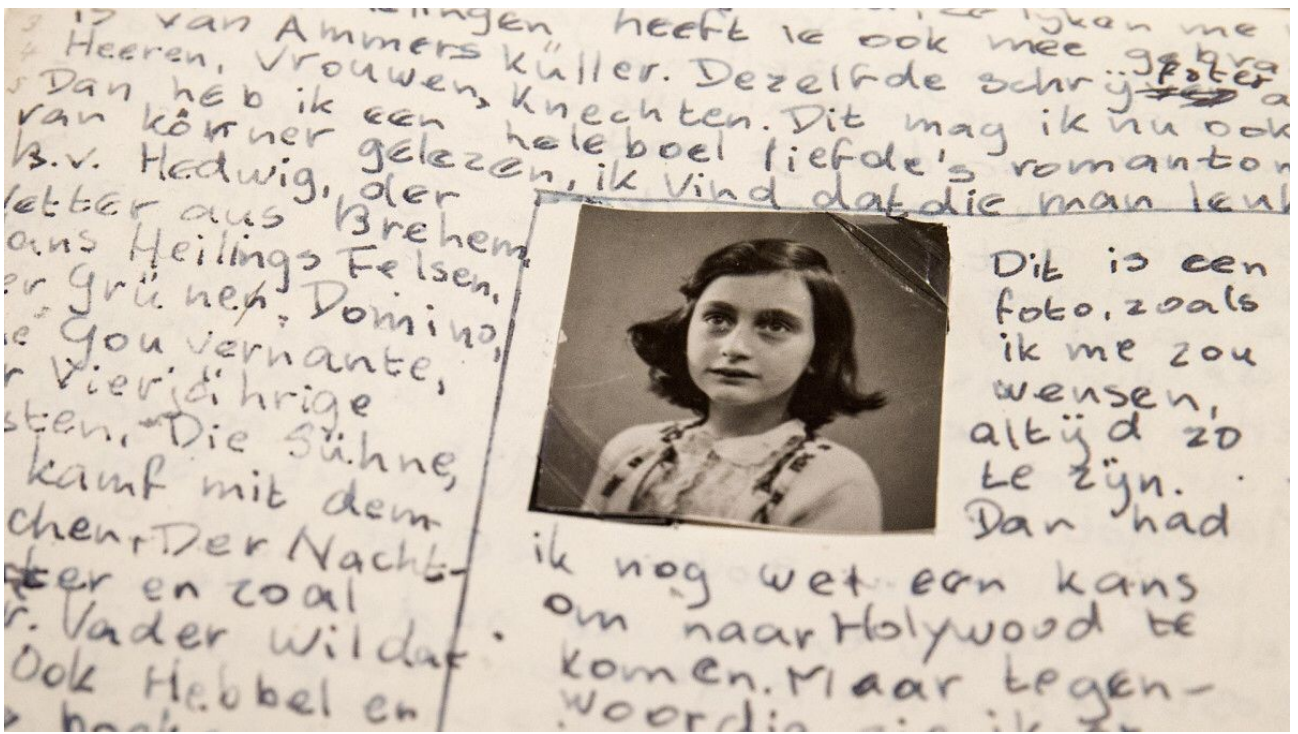 is van Ammers Küller. Dezelfde schrijfster
heeft ie ook mee gebra
Heeren, Vrouwen, Knechten. Dit mag ik nu ook
Dan heb ik een heleboel liefde's romanton
van körner gelezen, ik vind dat die man leuk
B.v. Hedwig, der
Vetter aus Brehem,
ans Heilings Felsen,
er Grünen, Domino,
e Gouvernante,
r Vierjährige
sten, Die Sühne,
kamf mit dem
chen, Der Nacht-
ter en zoal
r. Vader wil dat
ook Hebbel en
Dit is een
foto, zoals
ik me zou
wensen,
altijd zo
te zijn.
Dan had
ik nog wet een kans
om naar Holywood te
komen. Maar tegen-
woordig zie ik er